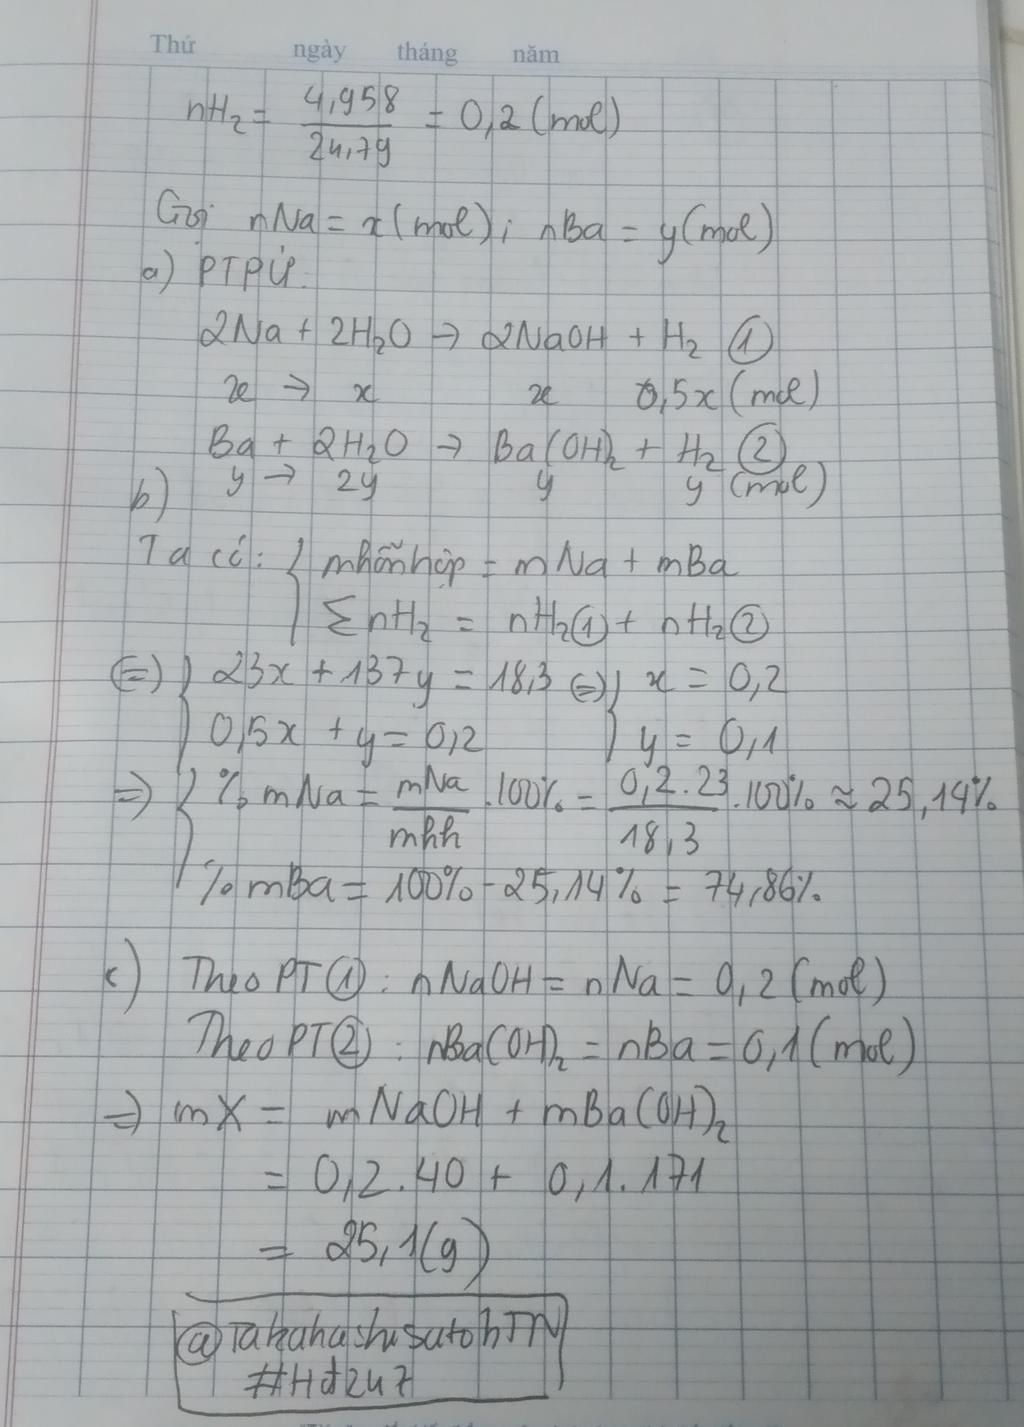 Thứ ngày tháng năm
nH₂ = 4,958/24,79 = 0,2 (mol)
Gọi nNa = x (mol); nBa = y (mol)
a) PTPƯ:
2Na + 2H₂O → 2NaOH + H₂ ①
x → x x 0,5x (mol)
Ba + 2H₂O → Ba(OH)₂ + H₂ ②
y → 2y y y (mol)
b)
Ta có: { mhỗn hợp = mNa + mBa
∑nH₂ = nH₂① + nH₂②
⇔ { 23x + 137y = 18,3 ⇔ { x = 0,2
0,5x + y = 0,2 y = 0,1
⇒ { %mNa = mNa/mhh .100% = 0,2.23/18,3 .100% ≈ 25,14%
%mBa = 100% - 25,14% = 74,86%.
c) Theo PT①: nNaOH = nNa = 0,2 (mol)
Theo PT②: nBa(OH)₂ = nBa = 0,1 (mol)
⇒ mX = mNaOH + mBa(OH)₂
= 0,2.40 + 0,1.171
= 25,1(g)
@TakahashisatohTN
#Hđ247